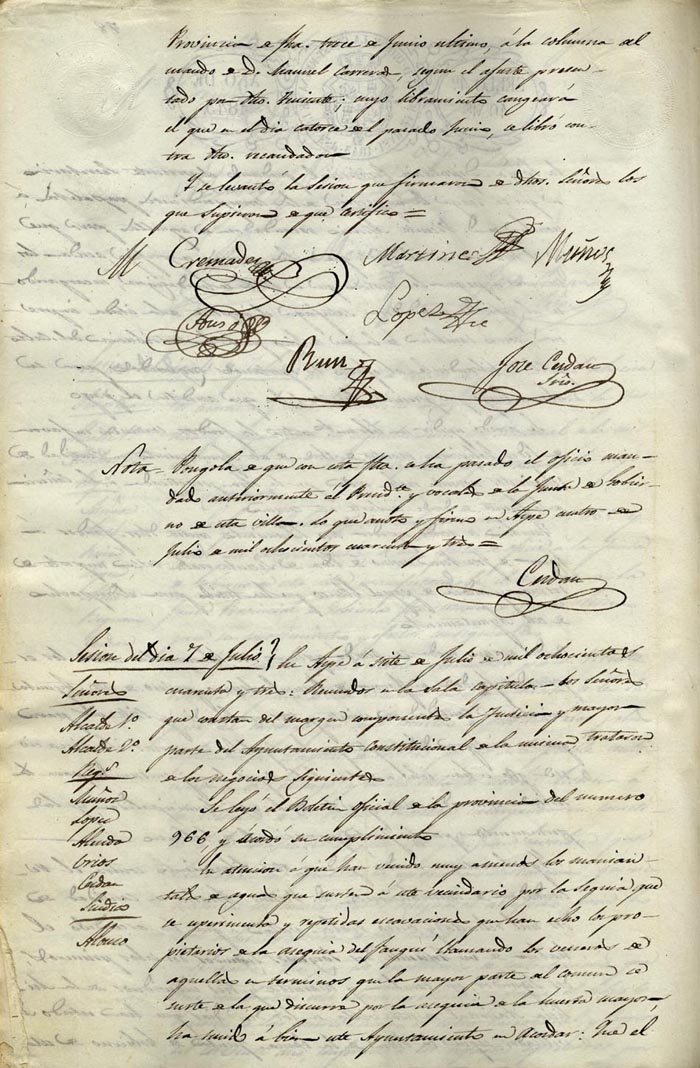 Provincia de fha. trece de Junio ultimo, á la columna al
mando de D. Manuel Carreras, segun el ajuste presen-
tado por dho. ; cuyo libramiento cangeará
el que en el dia catorce del pasado Junio, se libró con-
tra dho. recaudador
Y se levantó la sesion que firmaron de dhos. Señores los
que supieron de que certifico =
M Cremades Martines Muños
Lopez
Ruiz Jose Cerdan
Srio.
Nota = Pongola de que con esta fha. se ha pasado el oficio man-
dado anteriormente al Presid.te y vocales de la Junta de Gobier-
no de esta villa. Lo que anoto y firmo en Aspe cuatro de
Julio de mil ochocientos cuarenta y tres =
Cerdan
Sesion del dia 7 de Julio
Señores
Alcalde 1º.
Alcalde 2º.
Reg.s
Muñoz
Lopez
Almodo
Cerdan
Sindico
Alonso
En Aspe á siete de Julio de mil ochocientos
cuarenta y tres: Reunidos en la Sala capitular los Señores
que constan del margen componentes la Justicia y mayor
parte del Ayuntamiento Constitucional de la misma trataron
de los negocios siguientes
Se leyó el Boletin oficial de la provincia del numero
966 y acordó su cumplimiento
En atencion á que han venido muy á menos los manian-
tales de aguas que surten á este vecindario por la sequia que
se esperimenta y repetidas escavaciones que han echo los pro-
pietarios de la asequia del Fauquí llamando los veneros de
aquella en terminos que la mayor parte del comun se
surte de la que discurre por la asequia de la huerta mayor,
ha tenido á bien este Ayuntamiento en acordar: Que el